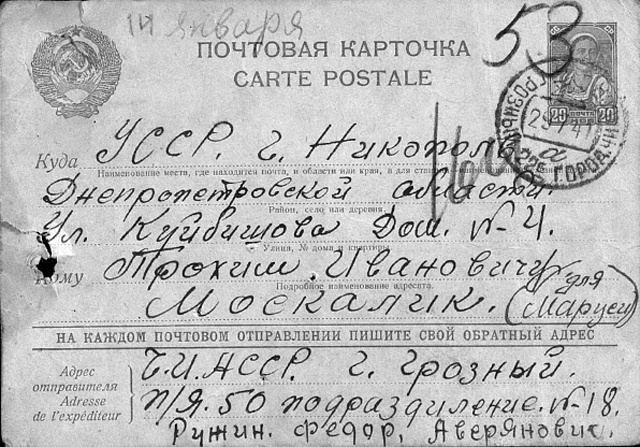 14 января
53
ПОЧТОВАЯ КАРТОЧКА
CARTE POSTALE
20 ПОЧТА 20
ГРОЗНЫЙ
29 1 41
Куда УССР. г. Никополь
Наименование места, где находится почта, и области или края, а для станций
Днепропетровской области
Район, село или деревня
Ул. Куйбишова Дом. N-4.
Улица, № дома и квартиры
Кому Трохим. Ивановичу
Подробное наименование адресата
Москалик. (для Маруси)
НА КАЖДОМ ПОЧТОВОМ ОТПРАВЛЕНИИ ПИШИТЕ СВОЙ ОБРАТНЫЙ АДРЕС
Адрес отправителя
Adresse de l'expéditeur
Ч.И.АССР. г. Грозный.
П/Я.50 подразділение. N-18.
Ружин. Федор. Аверянович.